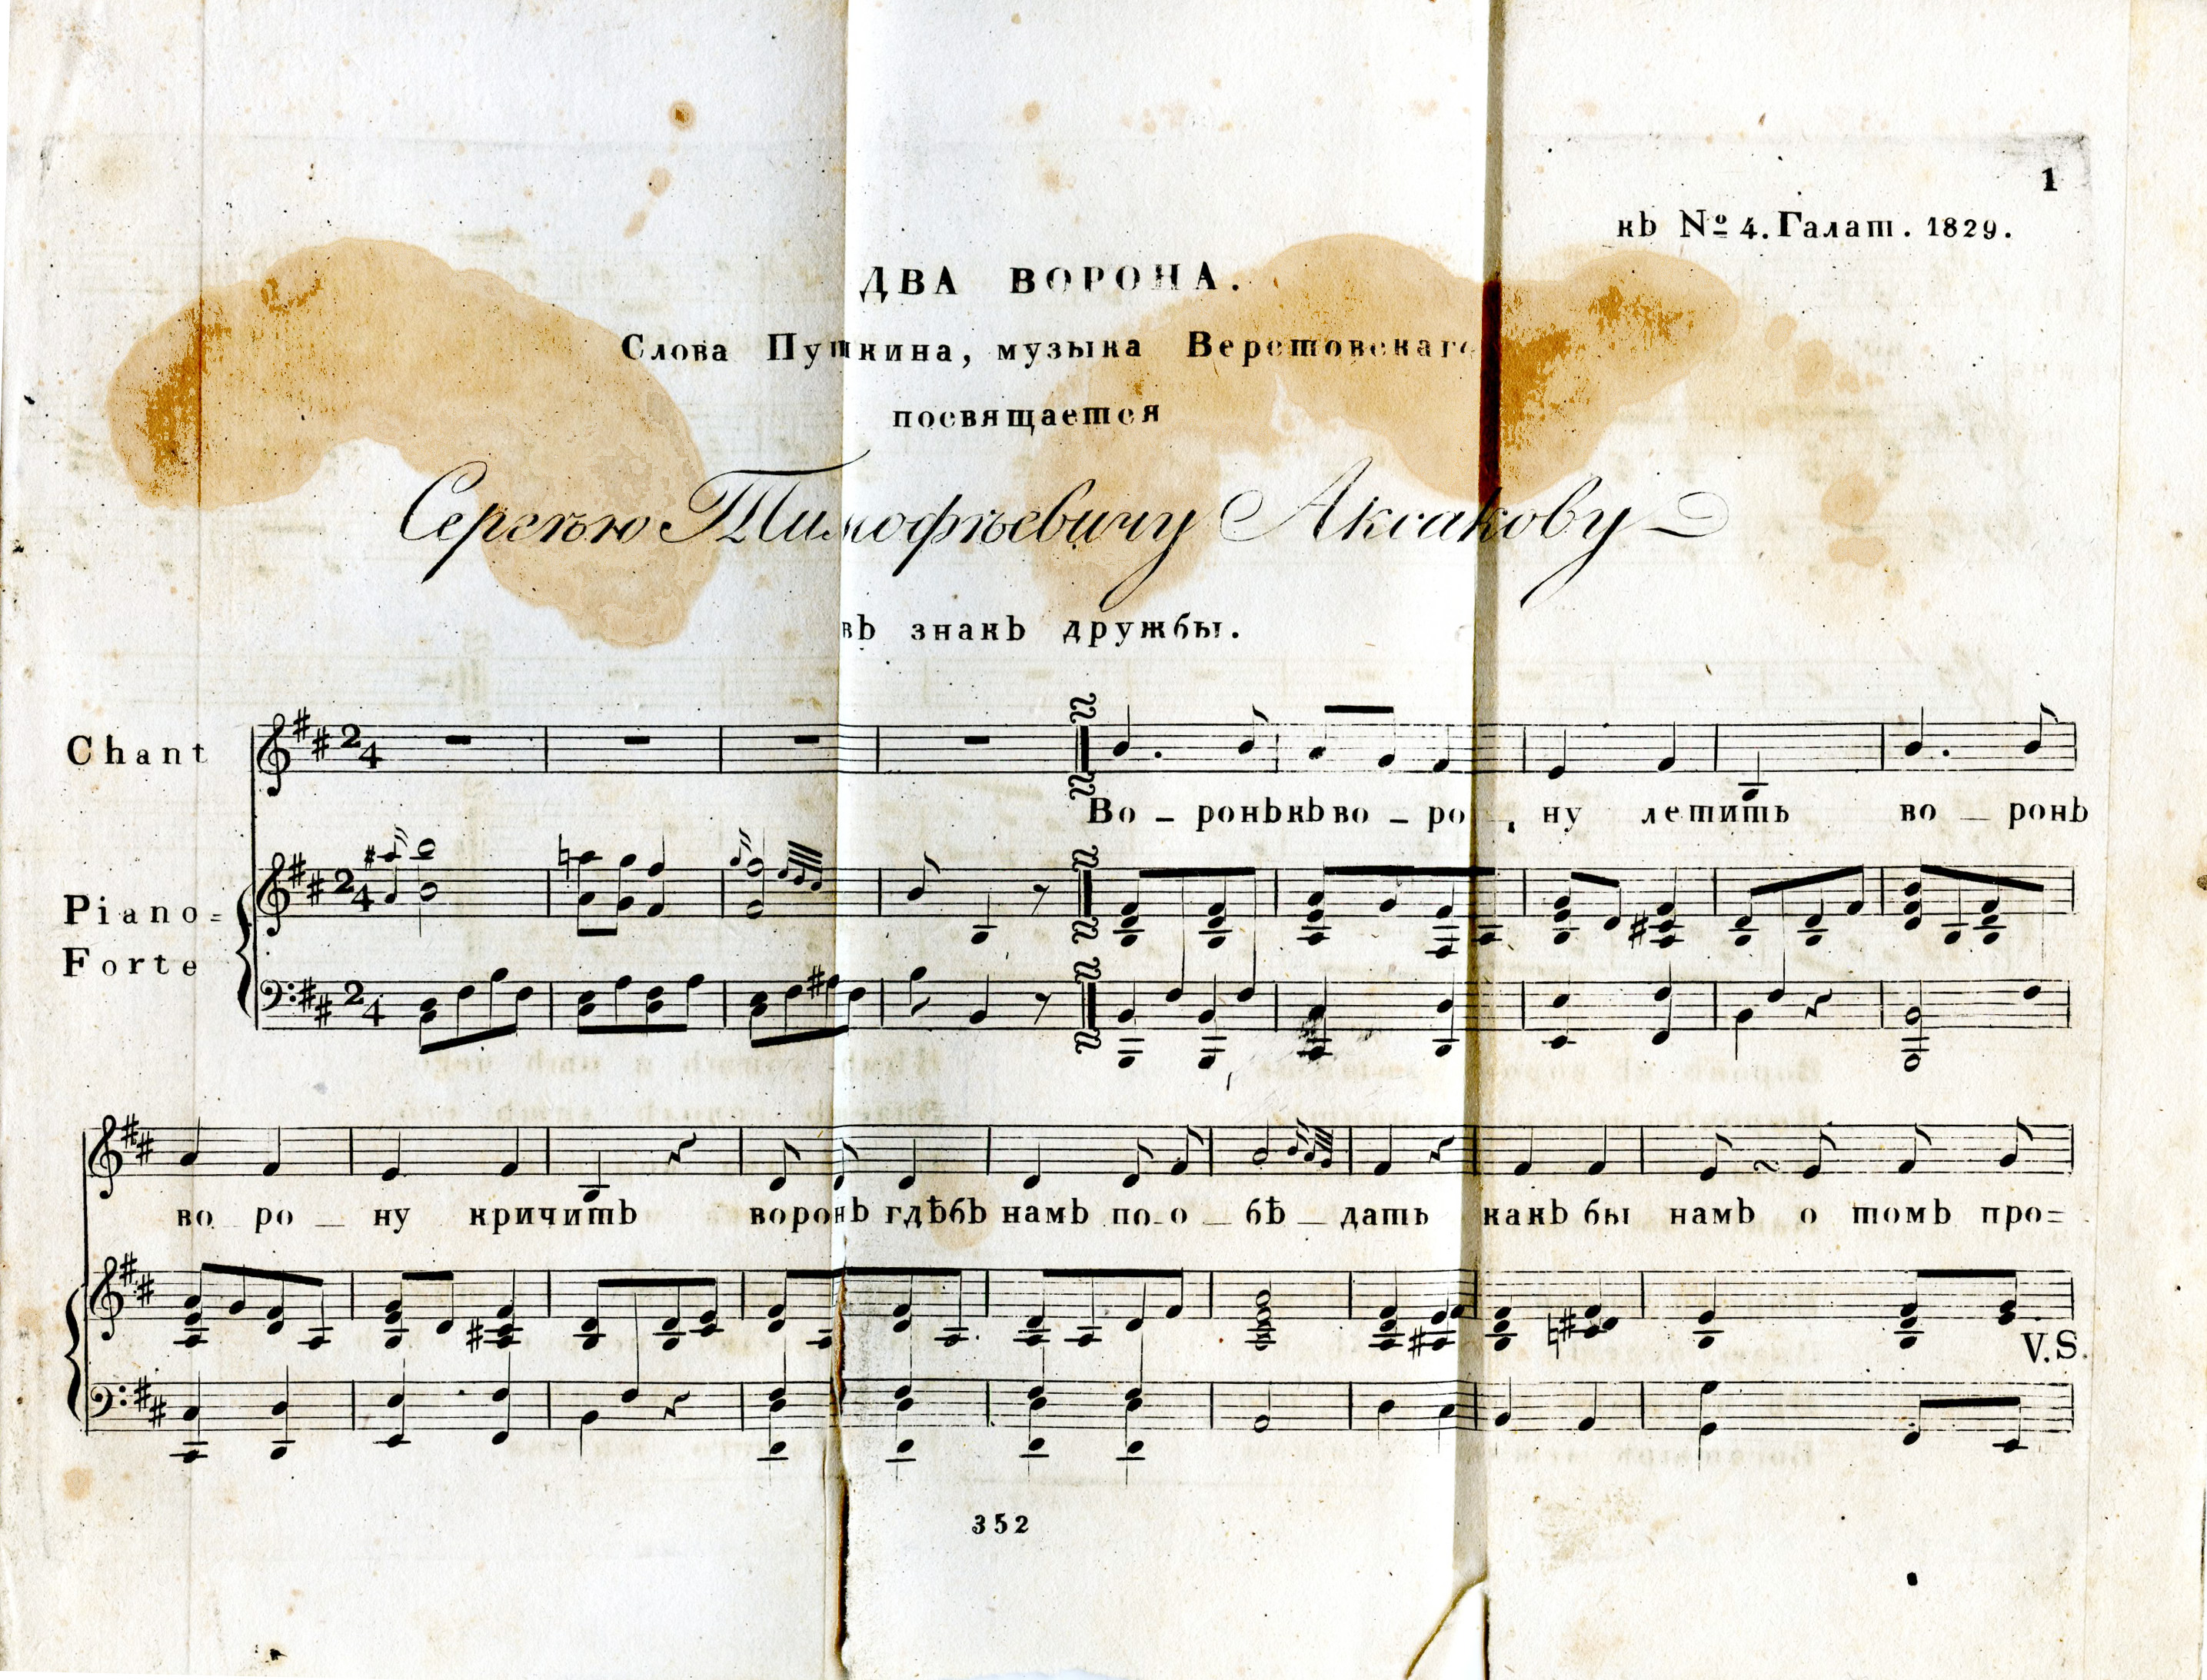 1
къ № 4. Галат. 1829.
ДВА ВОРОНА.
Слова Пушкина, музыка Верстовскаго
посвящается
Сергѣю Тимофѣевичу Аксакову
въ знакъ дружбы.
Chant
Во - ронъ къ во - ро - ну летитъ во - ронъ
Piano=
Forte
во ро - ну кричитъ воронъ гдѣбъ намъ по-о - бѣ - дать какъ бы намъ о томъ про=
V.S.
352